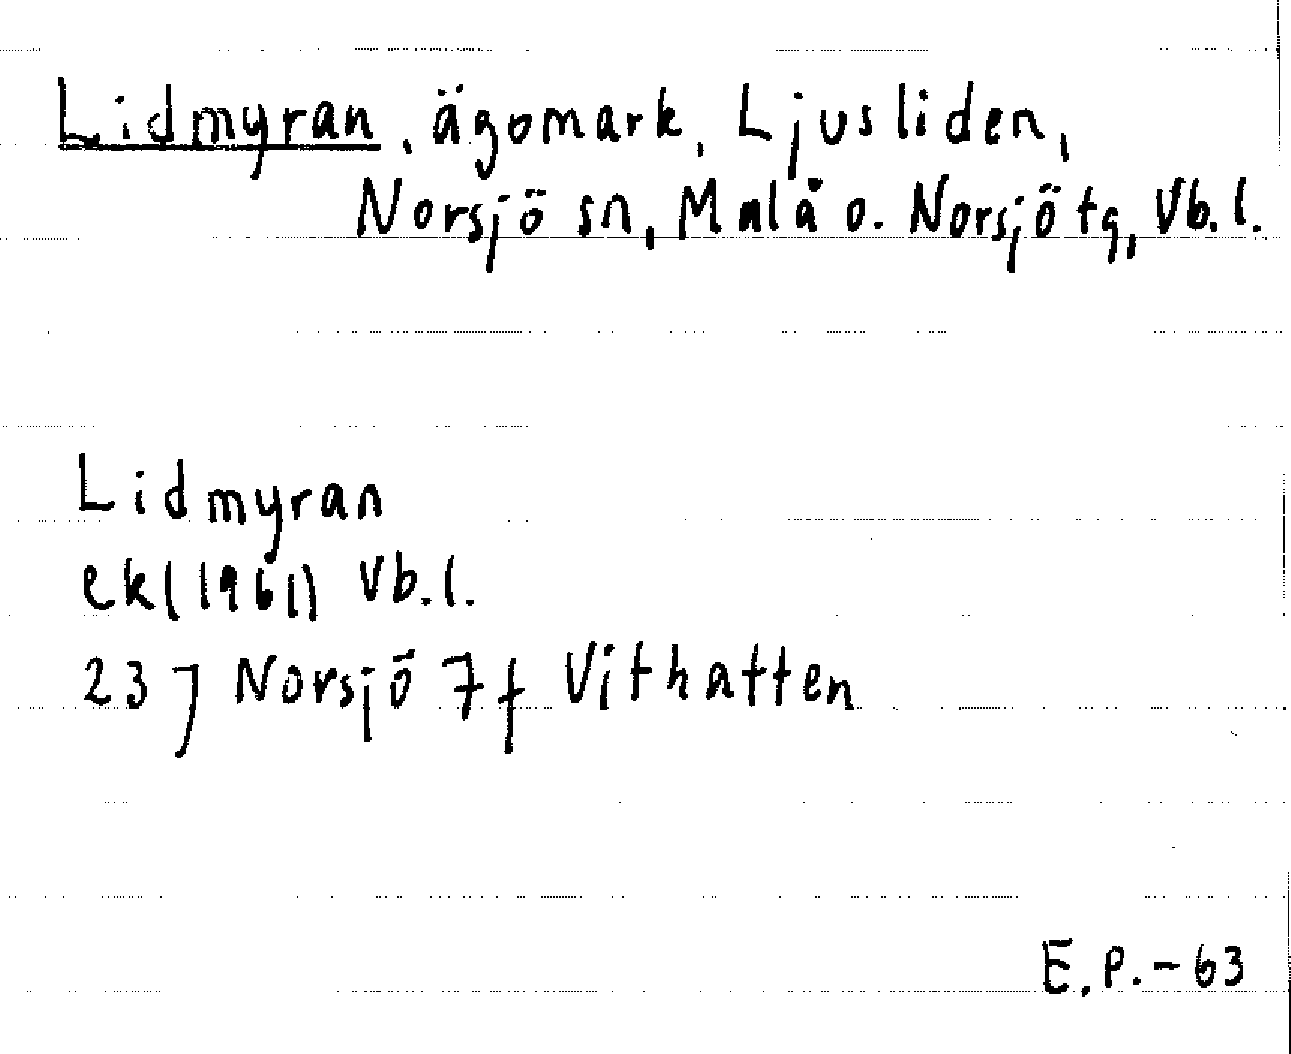 Lidmyran, ägomark, Ljusliden,
Norsjö sn, Malå o. Norsjö tg, Vb.l.
Lidmyran
ek(1961) Vb.l.
23J Norsjö 7f Vithatten
E.P.-63